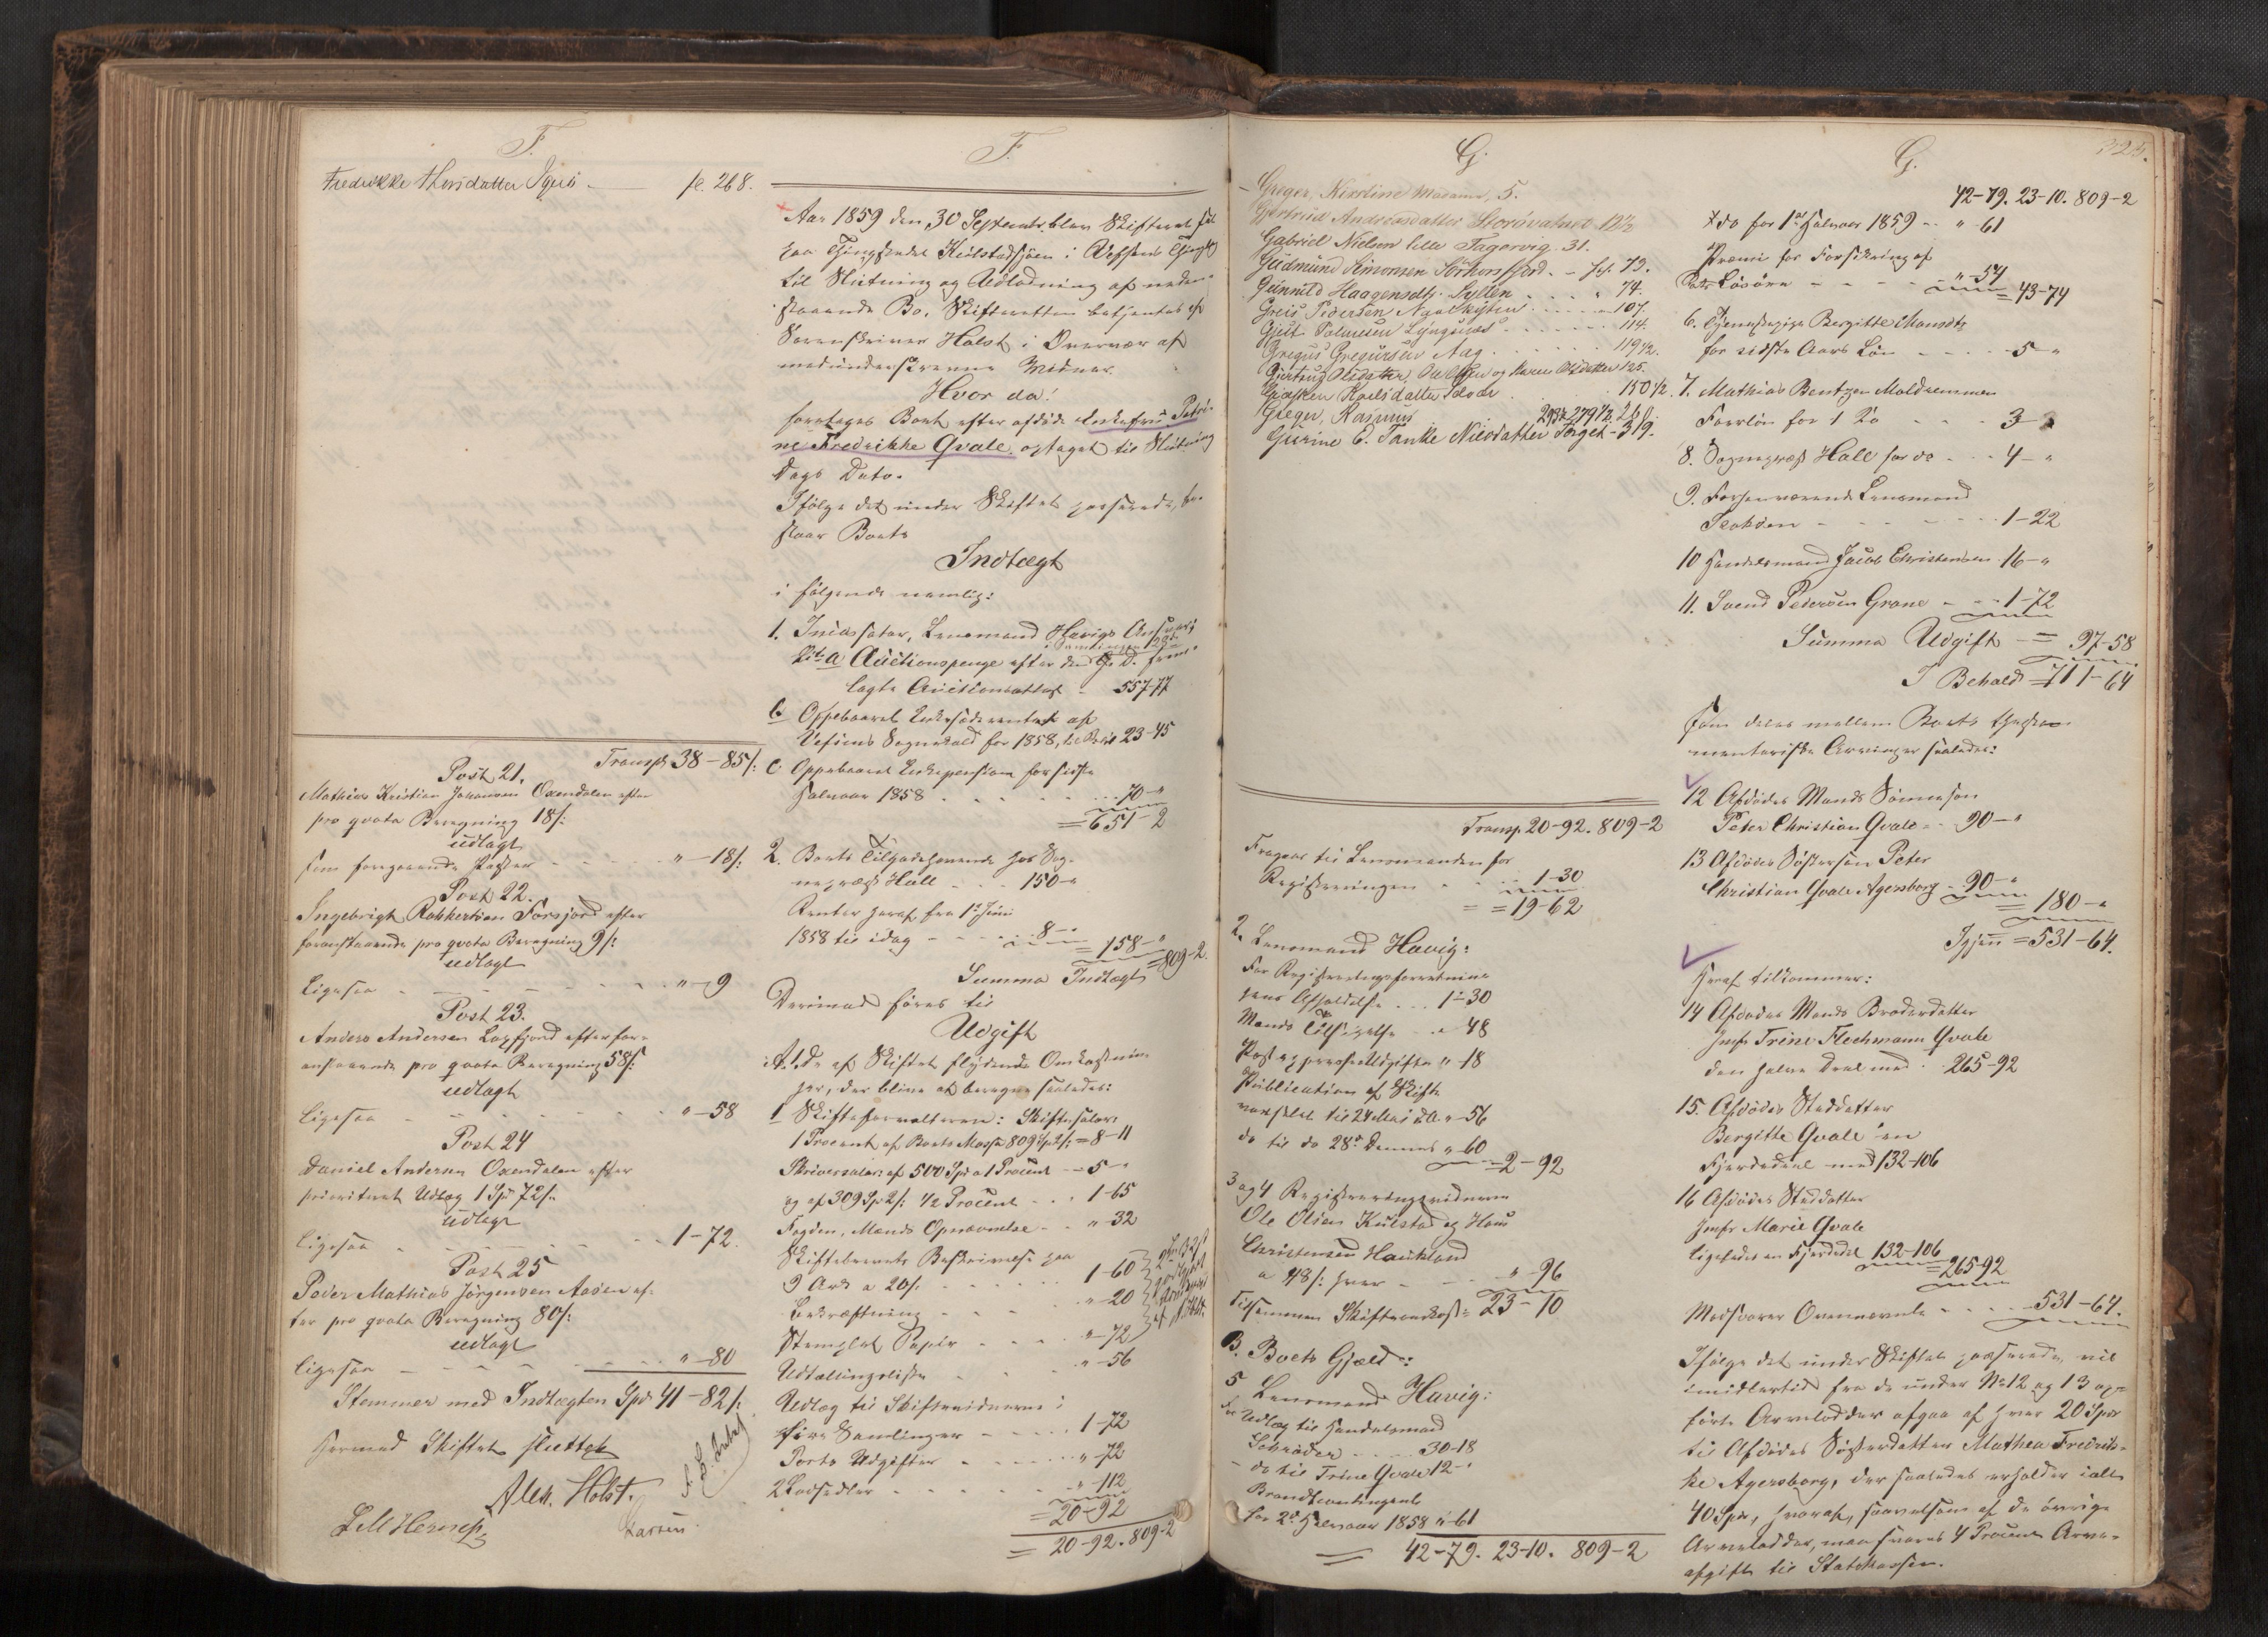 F.
Fredrikke Thersdatter Igerö - fl. 268.
Transpt 38-85/:
Post 21.
Mathias Kristian Johansen Oxendalen efter
pro qvota Beregning 18/:
udlagt
som foregaaende Poster - " - 18/:
Post 22.
Ingebrigt Robbertsen Forsjord efter
foranstaaende pro qvota Beregning 9/:
udlagt
Ligesaa - " - 9
Post 23.
Anders Andersen Laxfjord efter for-
anstaaende pro qvota Beregning 58/:
udlagt
Ligesaa - " - 58
Post 24
Daniel Andersen Oxendalen efter
prioriteret Udlæg 1 Spd 72/:
udlagt
Ligesaa - 1-72.
Post 25
Peder Mathias Jörgensen Aasen ef-
ter pro qvota Beregning 80/:
udlagt
Ligesaa - " - 80
Stemmer med Indtægten Spd 41-82/:
Hermed Skiftet sluttet
Alex. Holst.
F.
Aar 1859 den 30 Septembr. blev Skifteret sat
paa Thingstedet Kulstadsjöen i Vefsens Thingl.
til Slutning og Udlodning af neden-
staaende Bo. Skifteretten betjentes af
Sorenskriver Holst i Overvær af
medunderskrevne Vidner.
Hvor da!
foretoges Boet efter afdöde Enkefru Petri-
ne Fredrikke Qvale, optaget til Slutning
Dags Dato.
Ifölge det under Skiftet passerede, be-
staar Boets
Indtægt
i fölgende nemlig:
1. Incassator, Lensmand Havigs Ansvar;
Litr. a Auctionspenge efter den frem-
lagte Auctionsattest - 557-77
b Oppebaaret Enkesæderente af
Vefsens Sognekald for 1858, 23-45
c Oppebaaret Enkepension for sidste
Halvaar 1858 - 70-"
= 651-2
2. Boets Tilgodehavende hos Sog-
nepræst Hall - 150-"
Renter heraf fra 1ste Juni
1858 til idag - 8-"
= 158-"
Summa Indtægt = 809-2.
Derimod föres til
Udgift
A. De af Skiftet flydende Omkostnin-
ger, der blive at beregne saaledes:
1 Skifteforvalteren: Skiftesalær:
1 Procent af Boets Masse 809 Spd 2/: = 8-11
Skriversalær af 500 Spd a 1 Procent - 5-"
og af 309 Sp 2/: 1/2 Procent - 1-65
Fogden, Mænds Opnævnelse - " - 32
Skiftebrevets Beskrivelse paa
9 Ark a 20/: - 1-60
Bekræftning - " - 20
Stemplet Papir - " - 72
Udtællingsliste - " - 56
Udlæg til Skiftevidnerne i
fire Samlinger - 1-72
Porto Udgifter - " - 72
2 Lodsedler - " - 112
= 20-92
= 20-92. 809-2
G.
Greger, Kirstine Madame, 5.
Gjertrud Andreasdatter Storövatnet 12 1/2
Gabriel Nielsen Lille Fagervig. 31.
Gudmund Simonsen Sörhorsfjord - fol. 73.
Gunnild Haagensdtr. Syllen " 74.
Greis Pedersen 107.
114.
Gregus Gregursen Aag. 119 1/2.
Gjertrug Olsdatter, Ole Olsen og Karen Olsdatter 125.
150 1/2.
Greger, Rasmus 279 1/2. 260.
Gurine C. Tanke Nilsdatter Torget - 319.
Transp. 20-92. 809-2
Fragaar til Lensmanden for
Registreringen - 1-30
= 19-62
2. Lensmand Havig:
For Registreringsforretnin-
gens Afholdelse - 1-30
Mænds Tilsigelse - " 48
Postexpresseudgifter " - 18
Publication af Skifte
varslet til 24 Mai d.A. " - 56
do til do 28de Dennes " 60
= 2-92
3 og 4 Registreringsvidnerne
Ole Olsen Kulstad og Hans
Christensen Haukland
a 48/: hver - " - 96
Tilsammen Skifteomkost: 23-10
B. Boets Gjæld:
5 Lensmand Havig:
for Udlæg til Handelsmand
Schröder - 30-18
do til Trine Qvale 12-"
Brandcontingent
for 2det Halvaar 1858 " - 61
= 42-79. 23-10. 809-2
G.
325.
42-79. 23-10. 809-2
do for 1ste Halvaar 1859 - " 61
Præmie for Forsikring af
Boets Lösöre - " - 54
= 43-74
6. Tjenestepige Bergitte Monsdtr
for sidste Aars Lön - 5-"
7. Mathias Bentzen Moldremmen
Foerlön for 1 Ko - 3-"
8. Sognepræst Hall for do - 4-"
9. Forhenværende Lensmand
Jeobsen - 1-22
10 Handelsmand Jacob Christensen 16-"
11. Svend Pedersen Grane - 1-72
Summa Udgift = 97-58
I Behold = 711-64
som deles mellem Boets testa-
mentariske Arvinger saaledes:
12 Afdödes Mands Sönnesön
Peter Christian Qvale - 90-"
13 Afdödes Söstersön Peter
Christian Qvale Agersborg - 90-"
= 180-"
Igjen = 531-64.
Heraf tilkommer:
14 Afdödes Mands Broderdatter
Jmfr Trine Flechmann Qvale
den halve Deel med - 265-92
15. Afdödes Steddatter
Bergitte Qvale en
Fjerdedeel med 132-106
16 Afdödes Steddatter
Jmfr Marie Qvale
ligeledes en Fjerdedel 132-106
= 265-92
Modsvarer Ovennævnte - 531-64.
Ifölge det under Skiftet passerede, vil
imidlertid fra de under No 12 og 13 op-
förte Arvelodder afgaa af hver 20 Spd
til Afdödes Sösterdatter Mathea Fredrik-
ke Agersborg, der saaledes erholder ialt
40 Spd, hvoraf, saavelsom af de övrige
Arvelodder, maa svares 4 Procent Arve-
afgift til Statskassen.